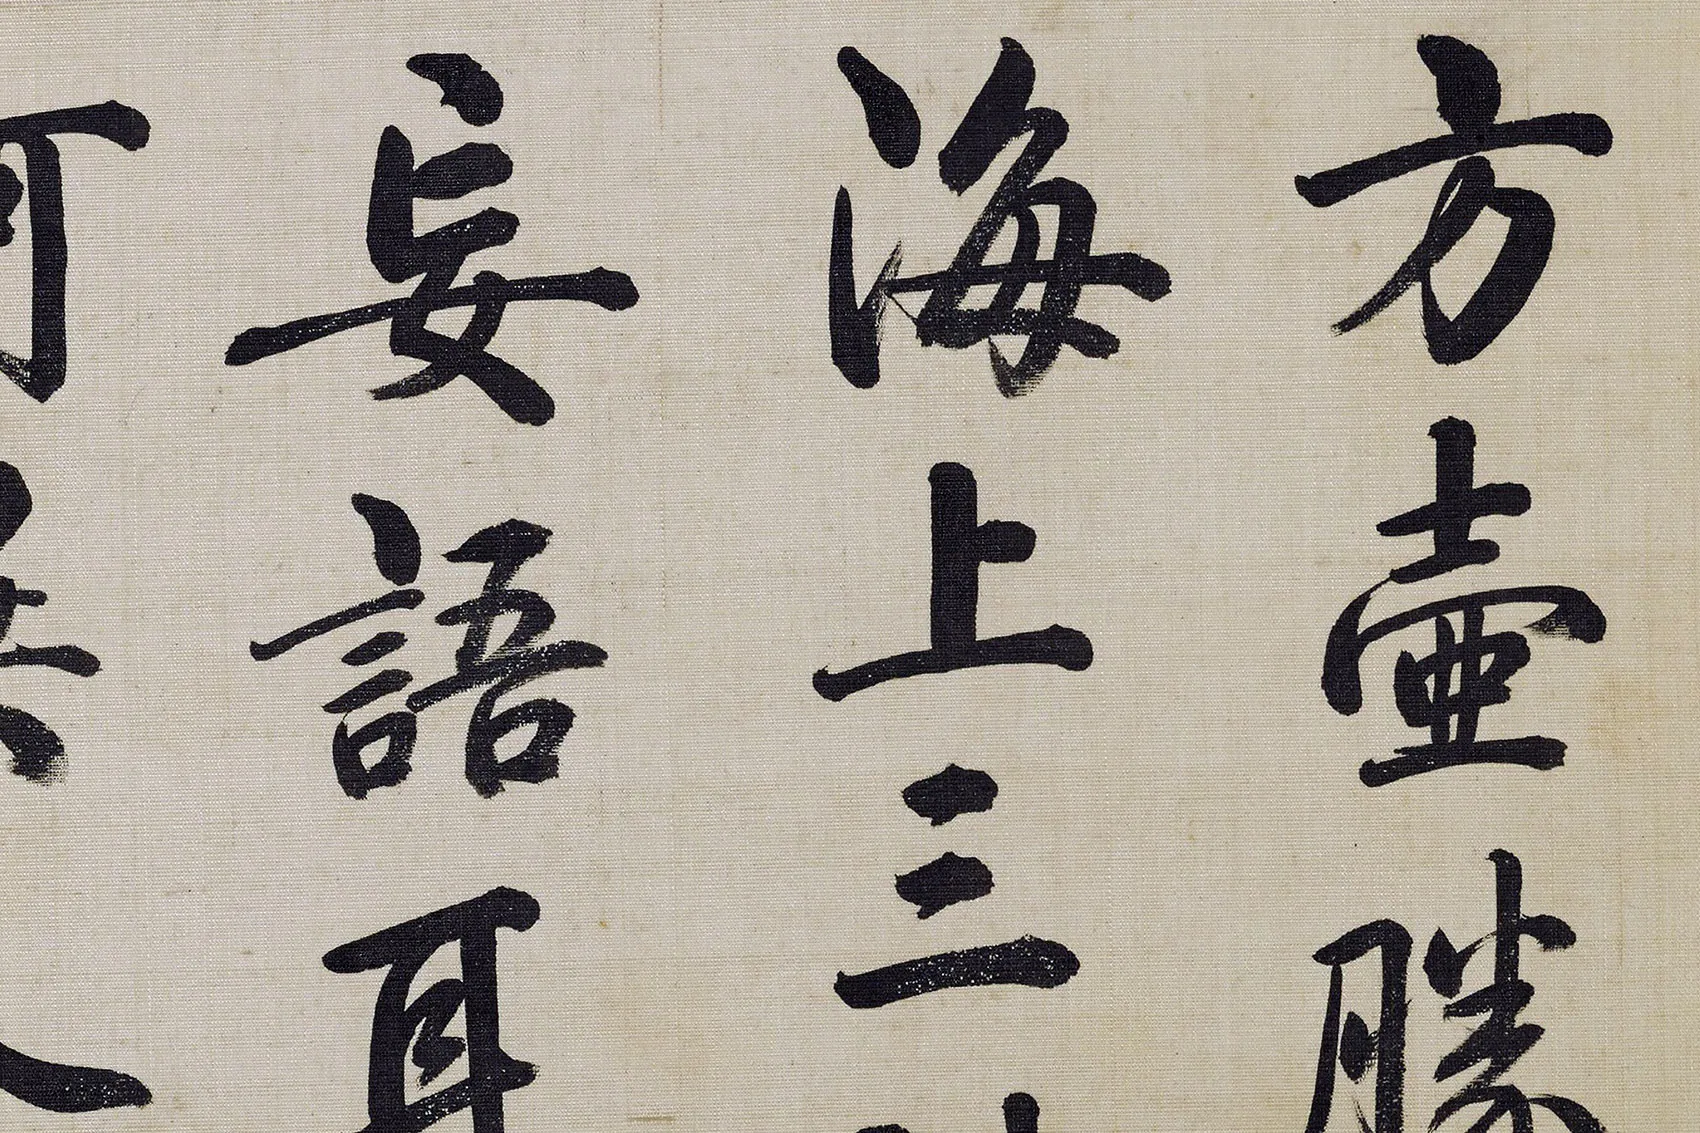 方壺勝
海上三
妄語耳
何